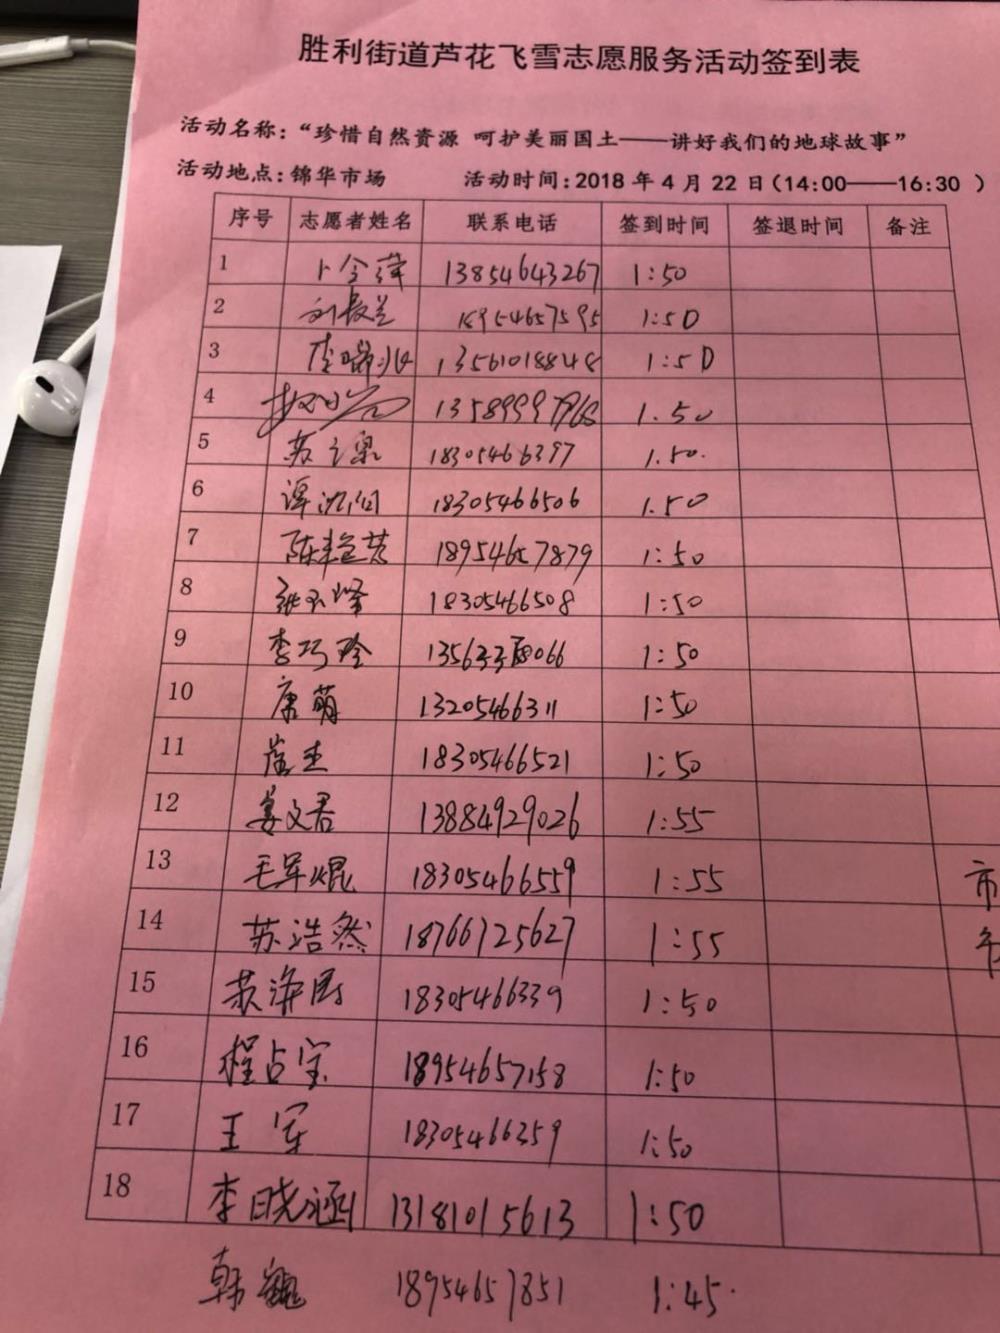 胜利街道芦花飞雪志愿服务活动签到表
活动名称：“珍惜自然资源 呵护美丽国土——讲好我们的地球故事”
活动地点：锦华市场 活动时间：2018 年 4 月 22 日（14:00——16:30 ）
序号 志愿者姓名 联系电话 签到时间 签退时间 备注
1 卜令萍 13854643267 1:50
2 18954657595 1:50
3 13561018848 1:50
4 1.50
5 苏 18305466397 1.50.
6 谭 18305466506 1.50
7 陈 18954657879 1:50
8 张玉峰 18305466508 1:50
9 李巧玲 1:50
10 唐萌 13205466311 1:50
11 崔杰 18305466521 1:50
12 姜文君 13884929026 1:55
13 毛军焜 18305466559 1:55
市
14 苏浩然 18766725627 1:55
15 苏海 18305466339 1:50
16 程占宝 18954657158 1:50
17 王军 18305466359 1:50
18 李晓涵 13181015613 1:50
韩巍 18954657851 1:45.